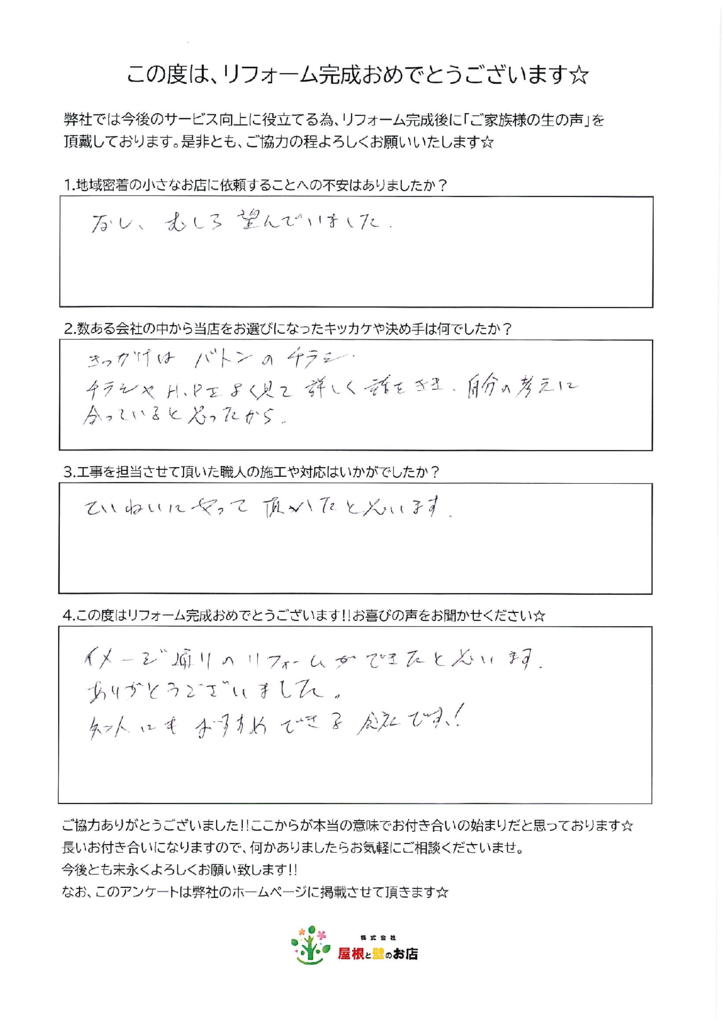 この度は、リフォーム完成おめでとうございます☆
弊社では今後のサービス向上に役立てる為、リフォーム完成後に「ご家族様の生の声」を
頂戴しております。是非とも、ご協力の程よろしくお願いいたします☆
1.地域密着の小さなお店に依頼することへの不安はありましたか？
なし、むしろ望んでいました.
2.数ある会社の中から当店をお選びになったキッカケや決め手は何でしたか？
きっかけは バトンのチラシ.
チラシや H.Pをよく見て 詳しく話をきき. 自分の考えに
合っていると思ったから.
3.工事を担当させて頂いた職人の施工や対応はいかがでしたか？
ていねいにやって頂いたと思います.
4.この度はリフォーム完成おめでとうございます!!お喜びの声をお聞かせください☆
イメージ通りのリフォームができたと思います.
ありがとうございました。
にも おすすめできる 会社です、!
ご協力ありがとうございました!!ここからが本当の意味でお付き合いの始まりだと思っております☆
長いお付き合いになりますので、何かありましたらお気軽にご相談くださいませ。
今後とも末永くよろしくお願い致します!!
なお、このアンケートは弊社のホームページに掲載させて頂きます☆
株式会社
屋根と壁のお店